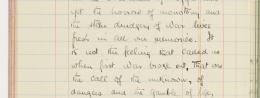 yet the horrors of monotony and
the stern drudgery of war lives
fresh in all our memories. It
is not the feeling that called us
when first war broke out, that was
the call of the unknown, of
dangers and the gamble of life,